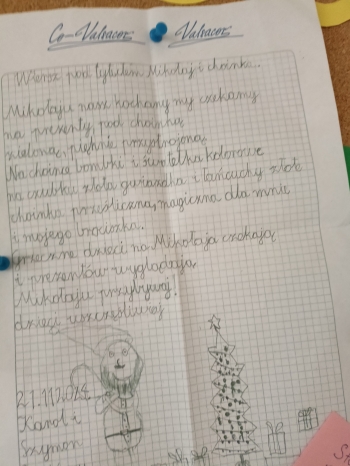 Co-Valsacor Valsacor
Wiersz pod tytułem Mikołaj i choinka.
Mikołaju nasz kochany my czekamy
na prezenty, pod choinką
zieloną, pięknie przystrojoną.
Na choince bombki i światełka kolorowe
na czubku złota gwiazdka i łańcuchy złote
choinka prześliczna, magiczna dla mnie
i mojego braciszka.
grzeczne dzieci na Mikołaja czekają
i prezentów wyglądają
Mikołaju przybywaj!
dzieci uszczęśliwiaj
Karol i
Szymon